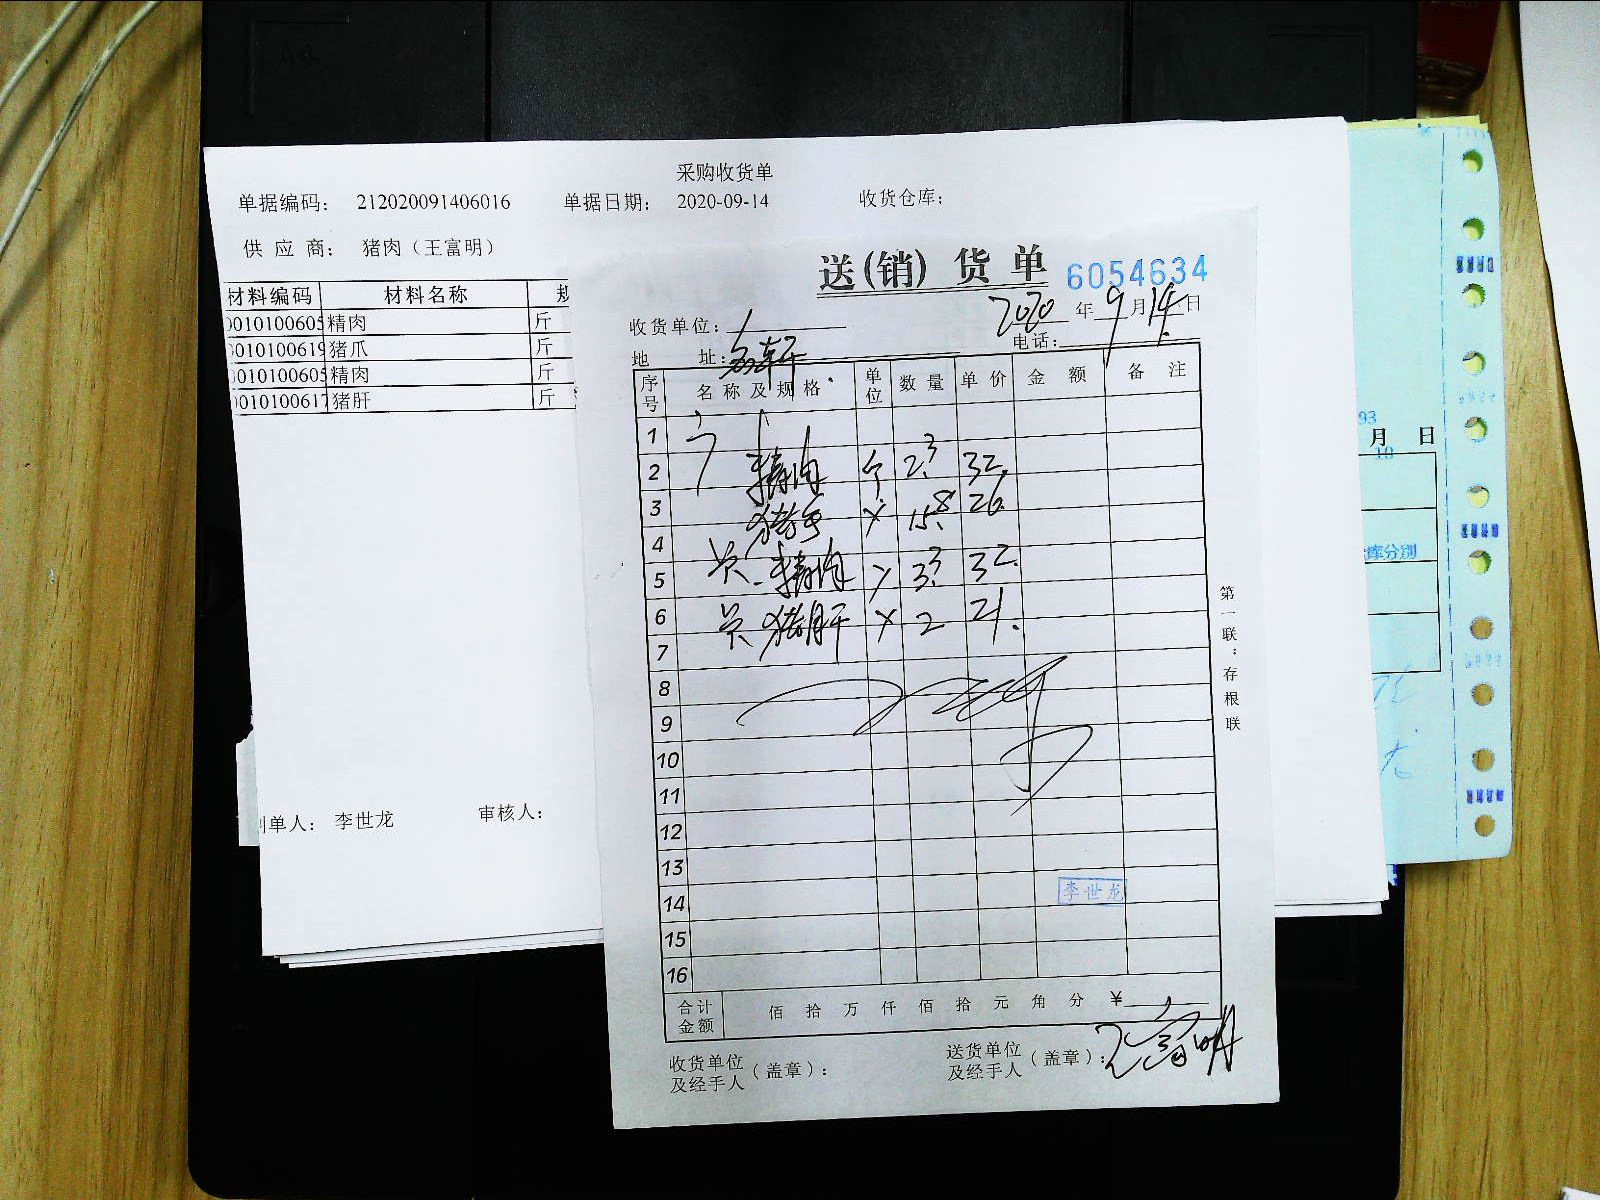 采购收货单
单据编码: 212020091406016 单据日期: 2020-09-14 收货仓库:
供 应 商: 猪肉（王富明）
材料编码 材料名称
精肉 斤
猪爪 斤
精肉 斤
猪肝 斤
制单人: 李世龙 审核人:
送(销) 货 单 6054634
2020 年 9 月 14 日
收货单位:
电话:
地 址:
序号 名称及规格 单位 数量 单价 金额 备注
1
2 精肉 2.3 32.
3 猪手 15.8 26.
4
5 精肉 3.3 32.
6 猪肝 2 21.
7
8
9
10
11
12
13
14 李世龙
15
16
合计金额 佰 拾 万 仟 佰 拾 元 角 分 ¥
收货单位及经手人（盖章）: 送货单位及经手人（盖章）: 王富明
第一联:存根联
月 日
库分别